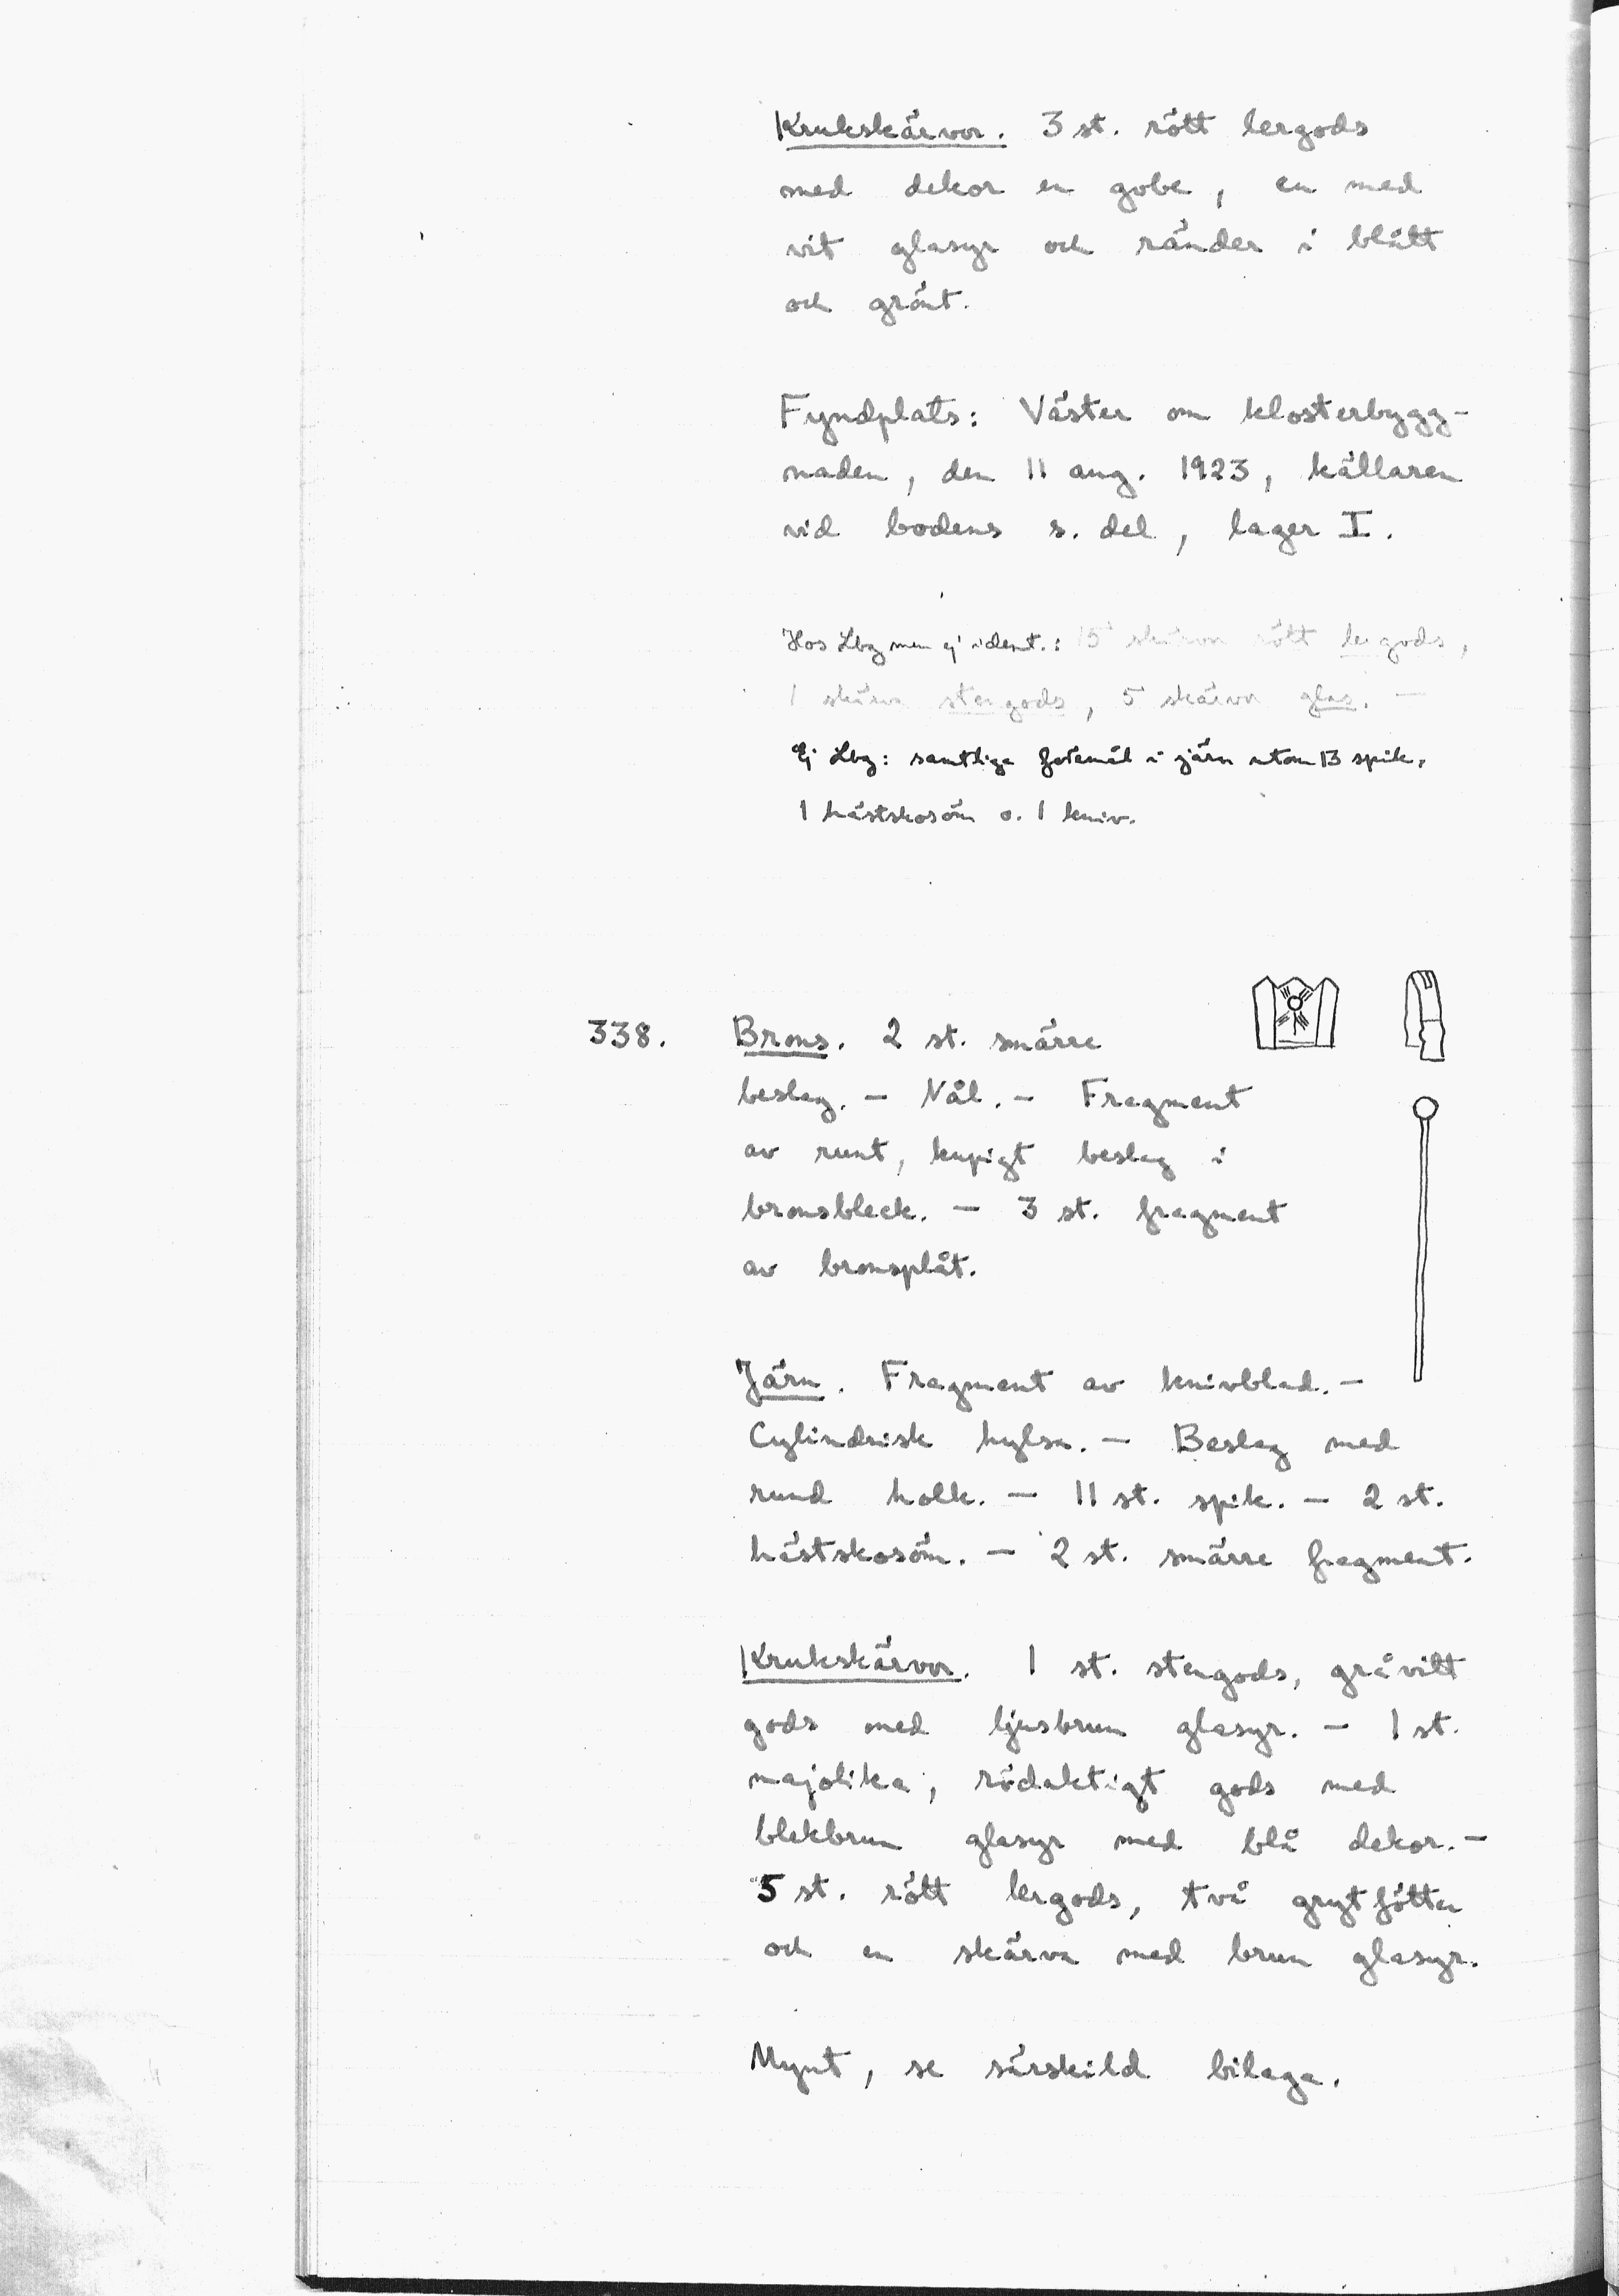 Krukskärvor. 3 st. rött lergods
med dekor en gobe, en med
vit glasyr och ränder i blått
och grönt.
Fyndplats: Väster om klosterbygg-
naden, den 11 aug. 1923, källaren
vid bodens s. del, lager I.
Hos Lbg men ej ident.: 15 skärvor rött lergods,
1 skärva stengods, 5 skärvor glas. —
Ej Lbg: samtliga föremål i järn utom 13 spik,
1 hästskosöm o. 1 kniv.
338. Brons. 2 st. smärre
beslag. — Nål. — Fragment
av runt, kupigt beslag i
bronsbleck. — 3 st. fragment
av bronsplåt.
Järn. Fragment av knivblad. —
Cylindrisk hylsa. — Beslag med
rund holk. — 11 st. spik. — 2 st.
hästskosöm. — 2 st. smärre fragment.
Krukskärvor. 1 st. stengods, gråvitt
gods med ljusbrun glasyr. — 1 st.
majolika, rödaktigt gods med
blekbrun glasyr med blå dekor. —
5 st. rött lergods, två grytfötter
och en skärva med brun glasyr.
Mynt, se särskild bilaga.